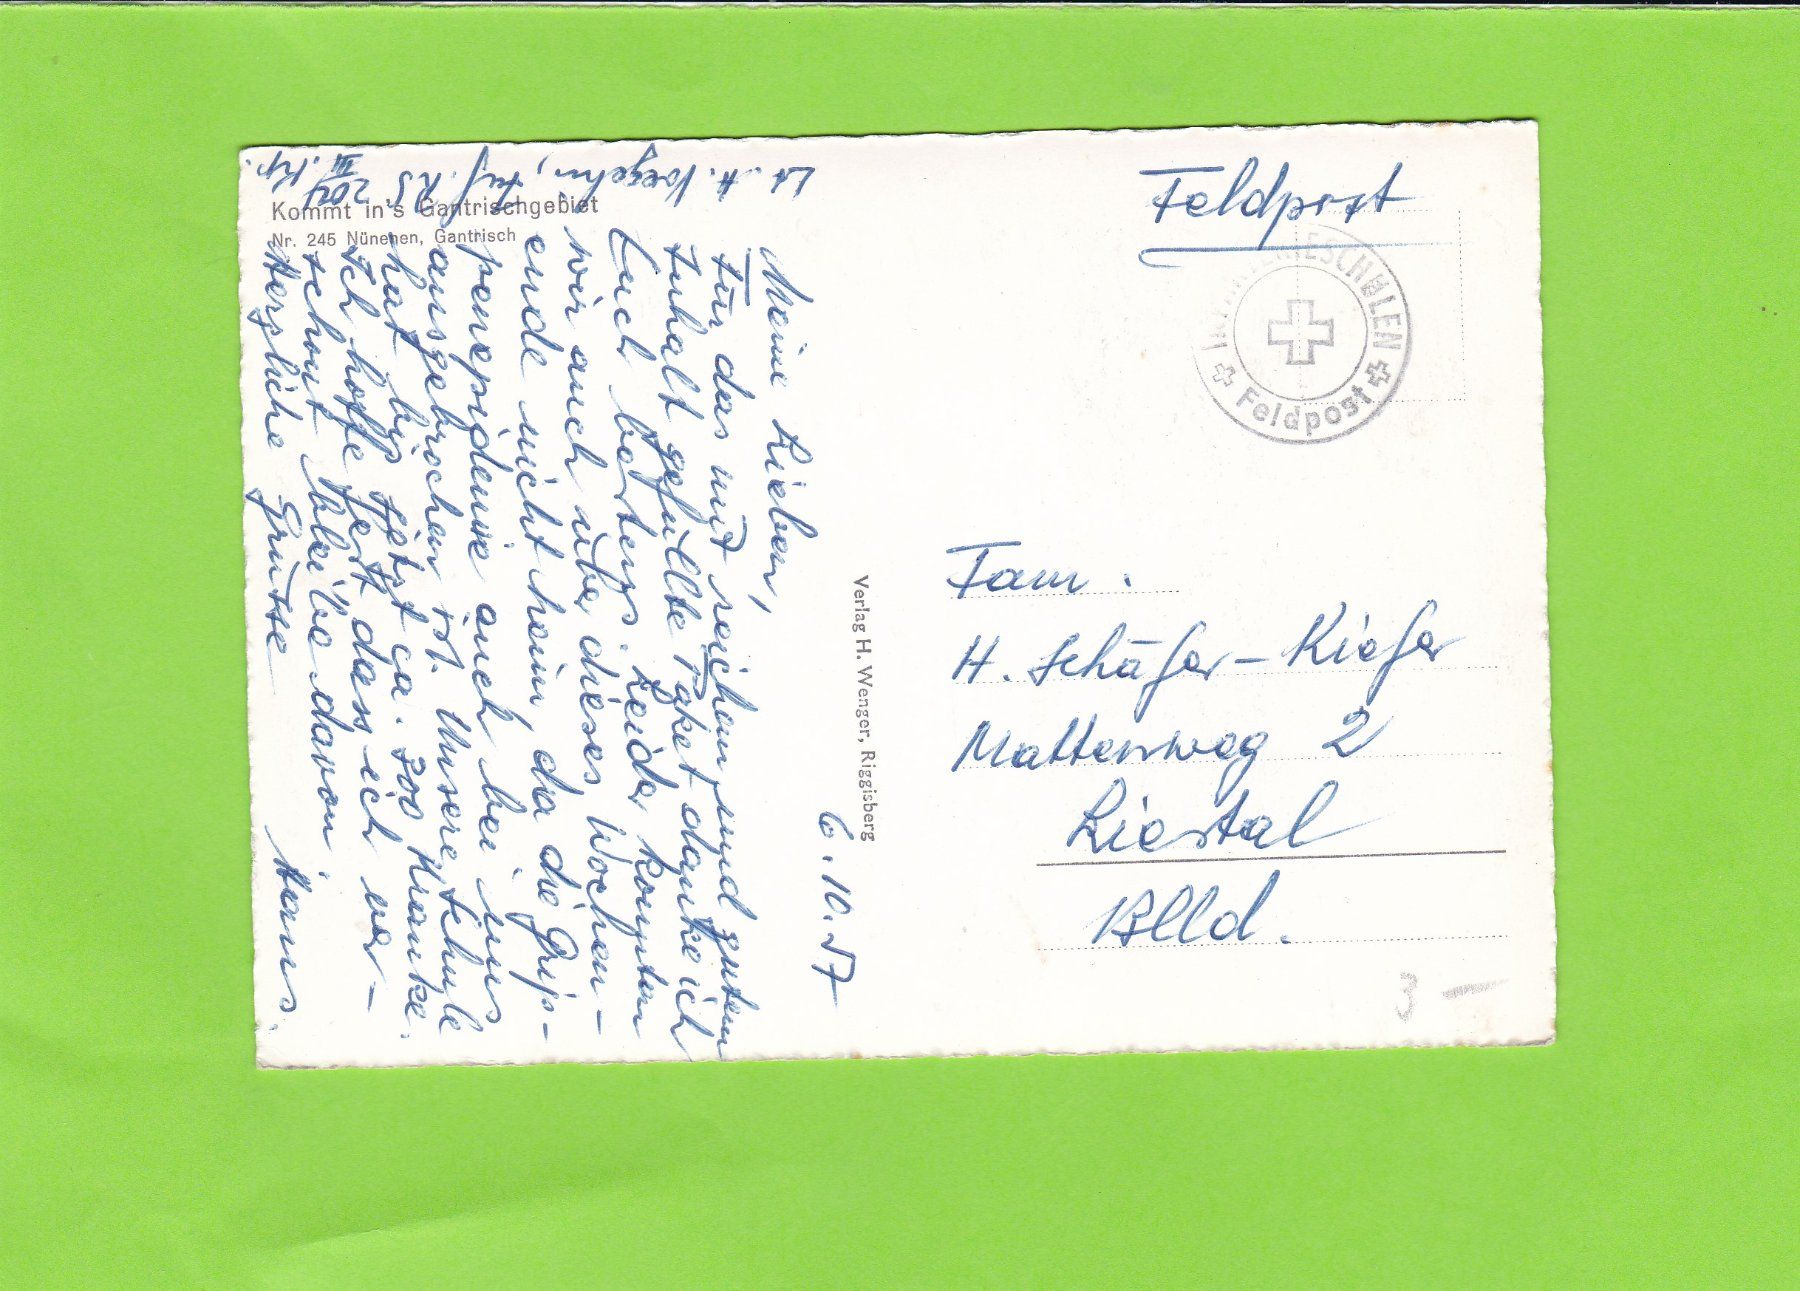 Kommt in's Gantrischgebiet
Nr. 245 Nünenen, Gantrisch
Lt. H. Inf. R.S. 204 III. Kp.
6.10.57
Meine Lieben,
Für das mit reichem und gutem
Inhalt gefüllte Paket danke ich
Euch bestens. Leider konnten
wir auch über dieses Wochen-
ende nicht heim, da die Grip-
penepidemie auch bei uns
ausgebrochen ist. Unsere Schule
hat bis jetzt ca. 300 Kranke.
Ich hoffe fest dass ich ver-
schont bleibe davon.
Herzliche Grüsse Hans.
Verlag H. Wenger, Riggisberg
Feldpost
INFANTERIESCHULEN
Feldpost
Fam.
H. Schäfer-Kiefer
Mattenweg 2
Liestal
Blld.
3 —